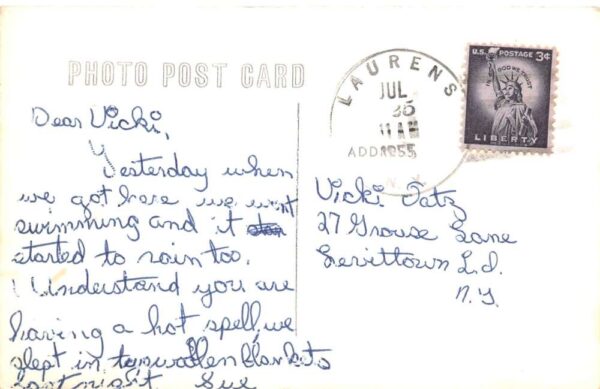 PHOTO POST CARD
LAURENS
JUL
11 AM
1955
N.Y.
U.S. POSTAGE 3¢
IN GOD WE TRUST
LIBERTY
Dear Vicki,
Yesterday when
we got here we went
swimming and it
started to rain too.
I Understand you are
having a hot spell, we
slept in two wollen blankets
last night. Sue
Vicki Satz
27 Grouse Lane
Levittown L.I.
N.Y.